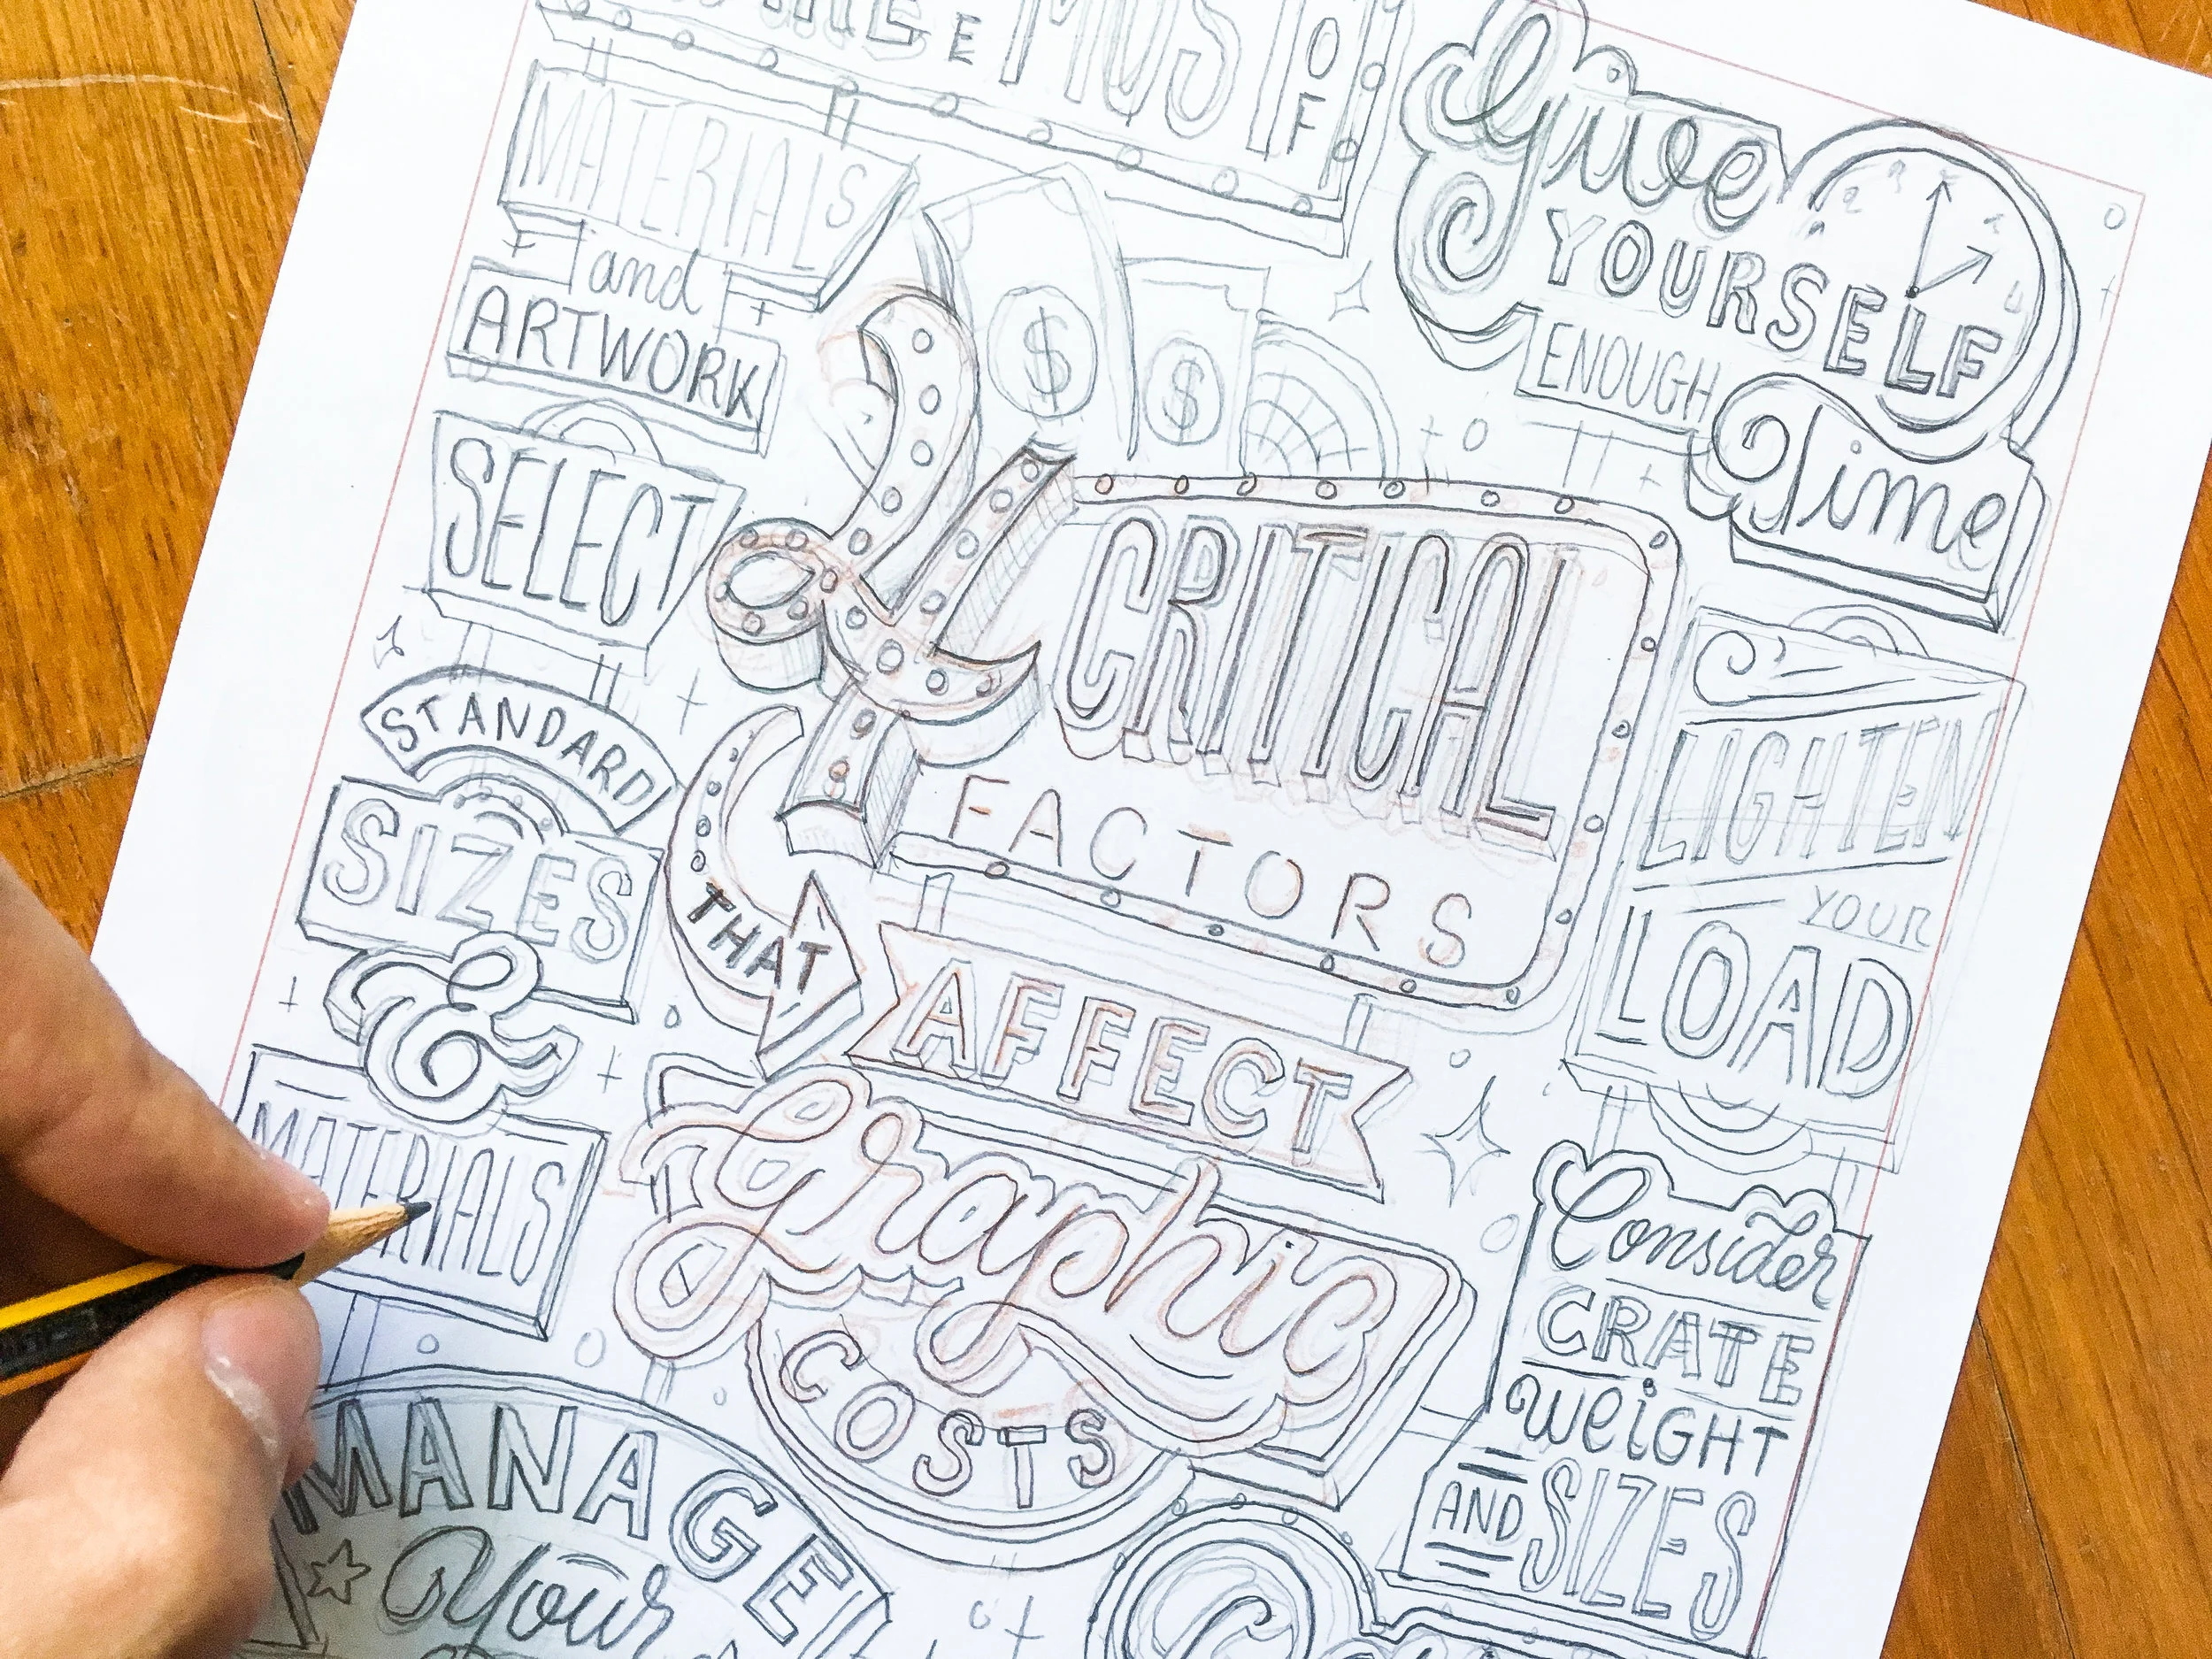 MOST
OF
MATERIALS
and
ARTWORK
Give
YOURSELF
ENOUGH
Time
$ $
4 CRITICAL
FACTORS
THAT
AFFECT
Graphic
COSTS
SELECT
STANDARD
SIZES
&
MATERIALS
LIGHTEN
YOUR
LOAD
Consider
CRATE
WEIGHT
AND SIZES
MANAGE
Your